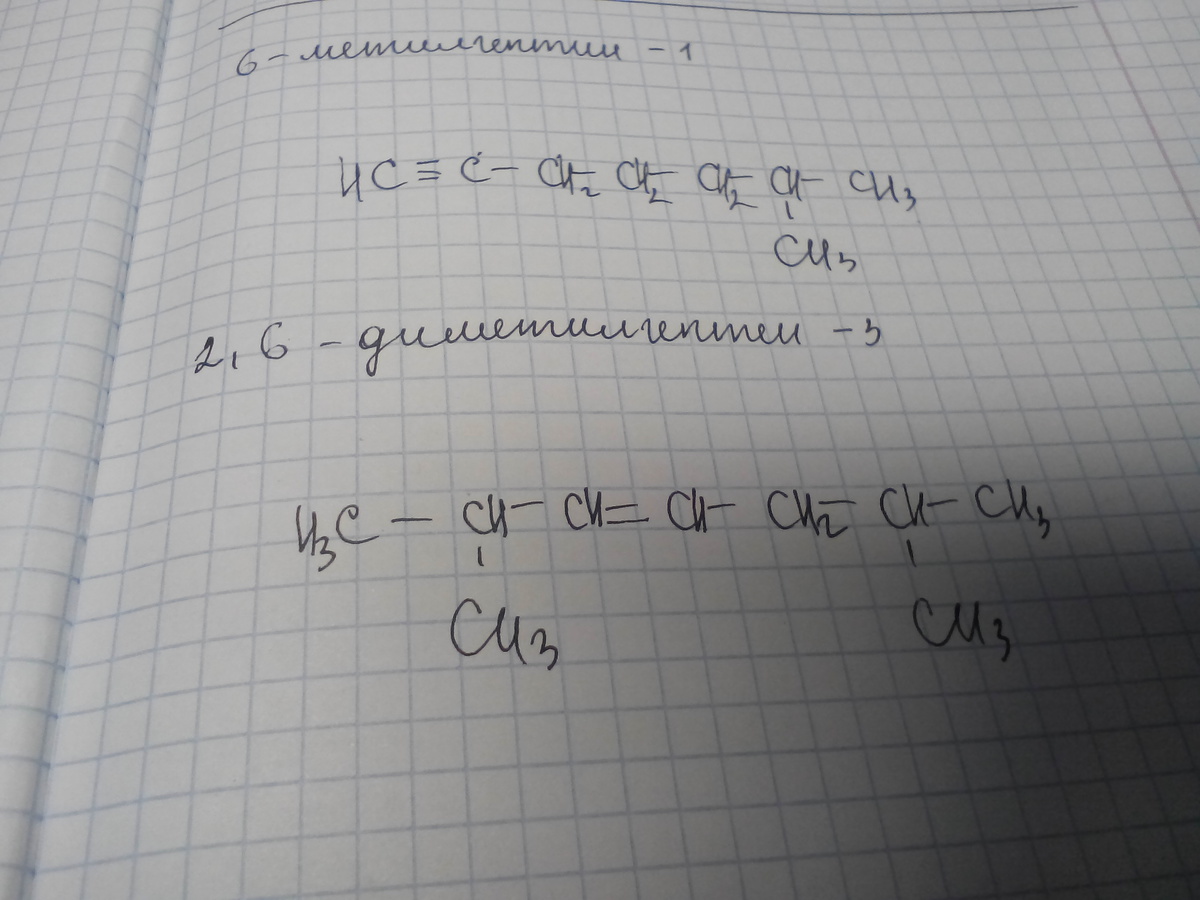 6-метилгептин-1
HC≡C-CH₂-CH₂-CH₂-CH-CH₃
CH₃
2,6-диметилгептен-3
H₃C-CH-CH=CH-CH₂-CH-CH₃
CH₃ CH₃